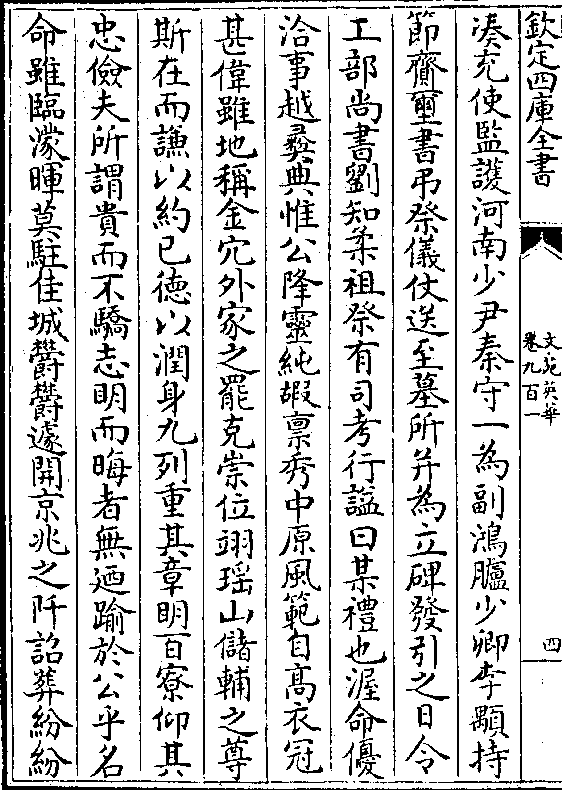 欽定四庫全書
文苑英華
卷九百一
四
湊充使監護河南少尹秦守一為副鴻臚少卿李顒持
節齎璽書弔祭儀仗送至墓所并為立碑發引之日令
工部尚書劉知柔祖祭有司考行諡曰某禮也渥命優
洽事越彞典惟公降靈純嘏禀秀中原風範自高衣冠
甚偉雖地稱金穴外家之罷克崇位翊瑶山儲輔之尊
斯在而謙以約己德以潤身九列重其章明百寮仰其
忠儉夫所謂貴而不驕志明而晦者無廼踰於公乎名
命雖臨濛暉莫駐佳城鬱鬱遽開京兆之阡詔葬紛紛